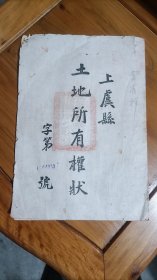 上虞縣
土地所有權狀
字第
號